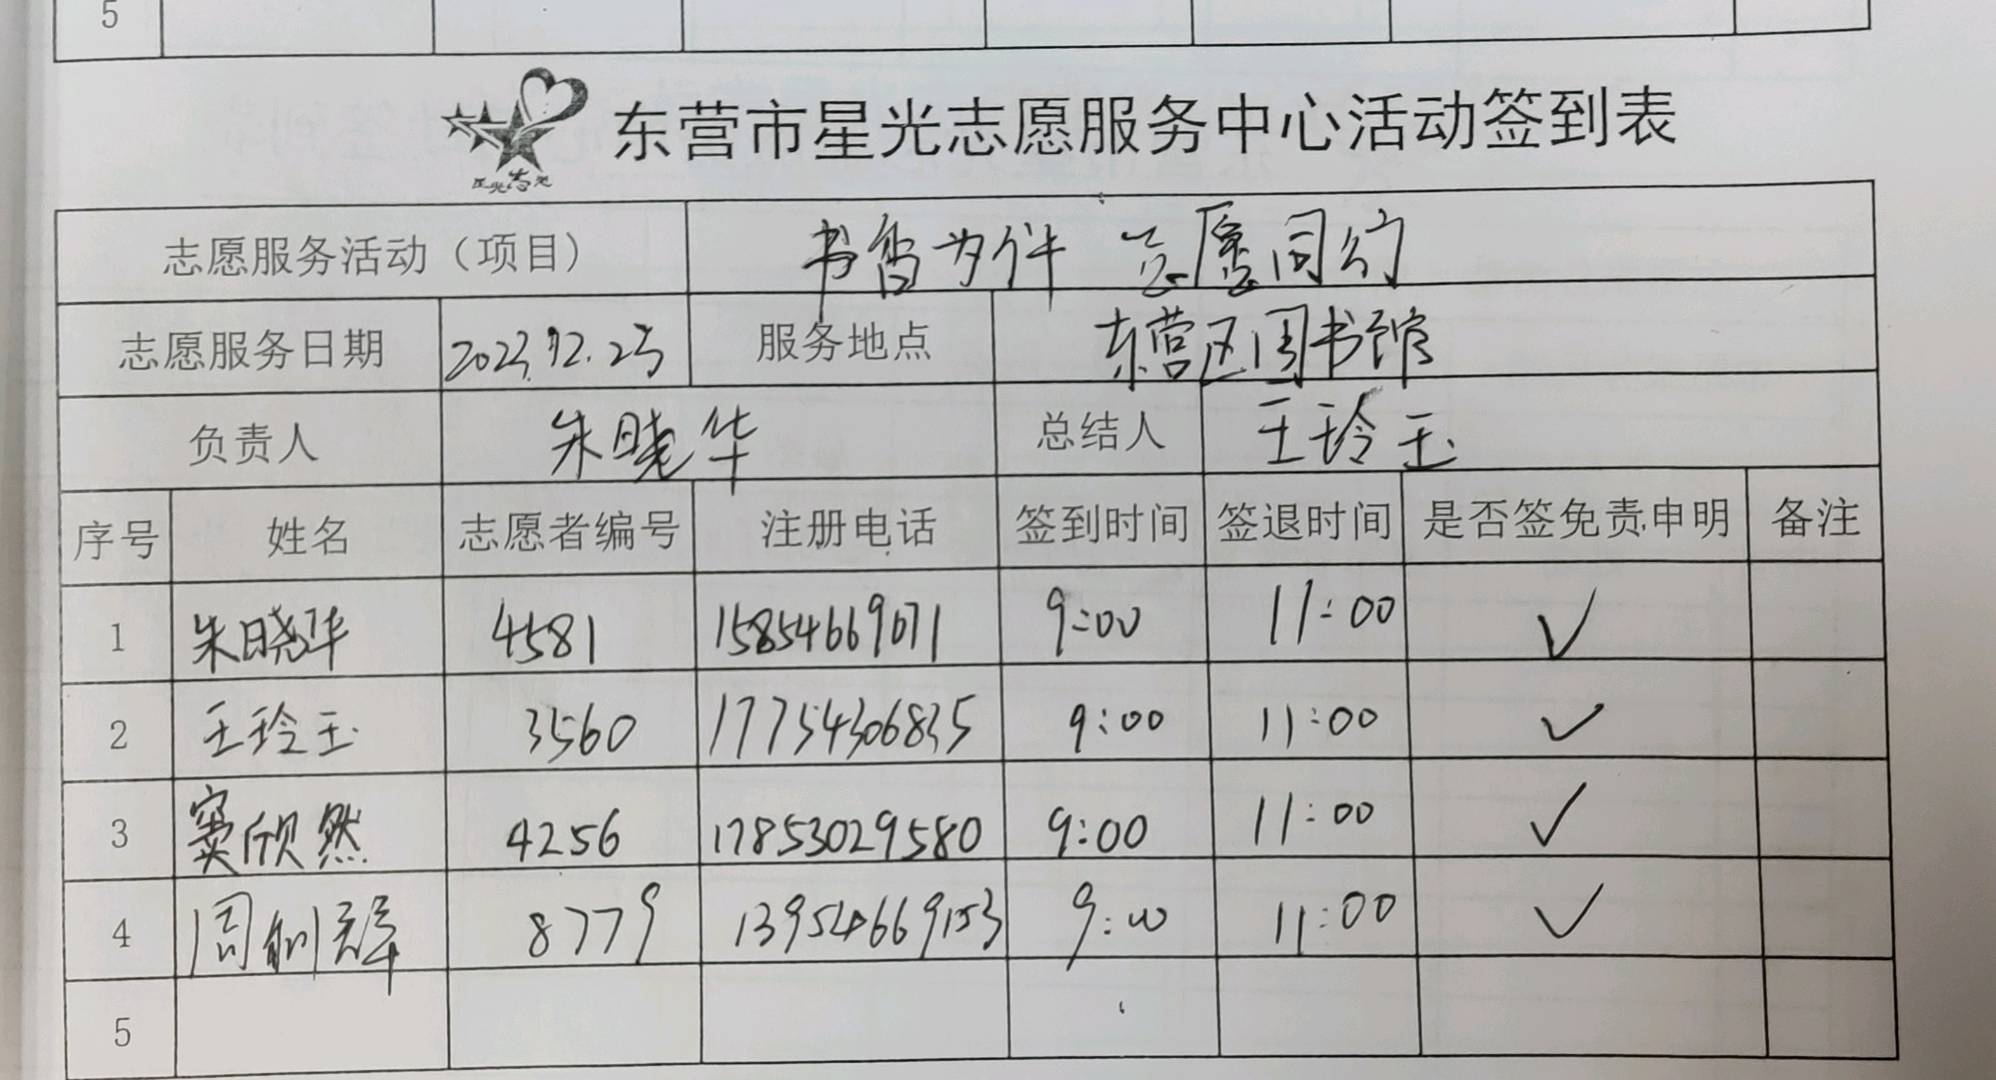 5
星光志愿
东营市星光志愿服务中心活动签到表
志愿服务活动（项目） 书香为伴 志愿同行
志愿服务日期 2023.12.23 服务地点 东营区图书馆
负责人 朱晓华 总结人 王玲玉
序号 姓名 志愿者编号 注册电话 签到时间 签退时间 是否签免责申明 备注
1 朱晓华 4581 15854669671 9:00 11:00 ✓
2 王玲玉 3560 17754306835 9:00 11:00 ✓
3 窦欣然 4256 17853029580 9:00 11:00 ✓
4 8779 13954669153 9:00 11:00 ✓
5